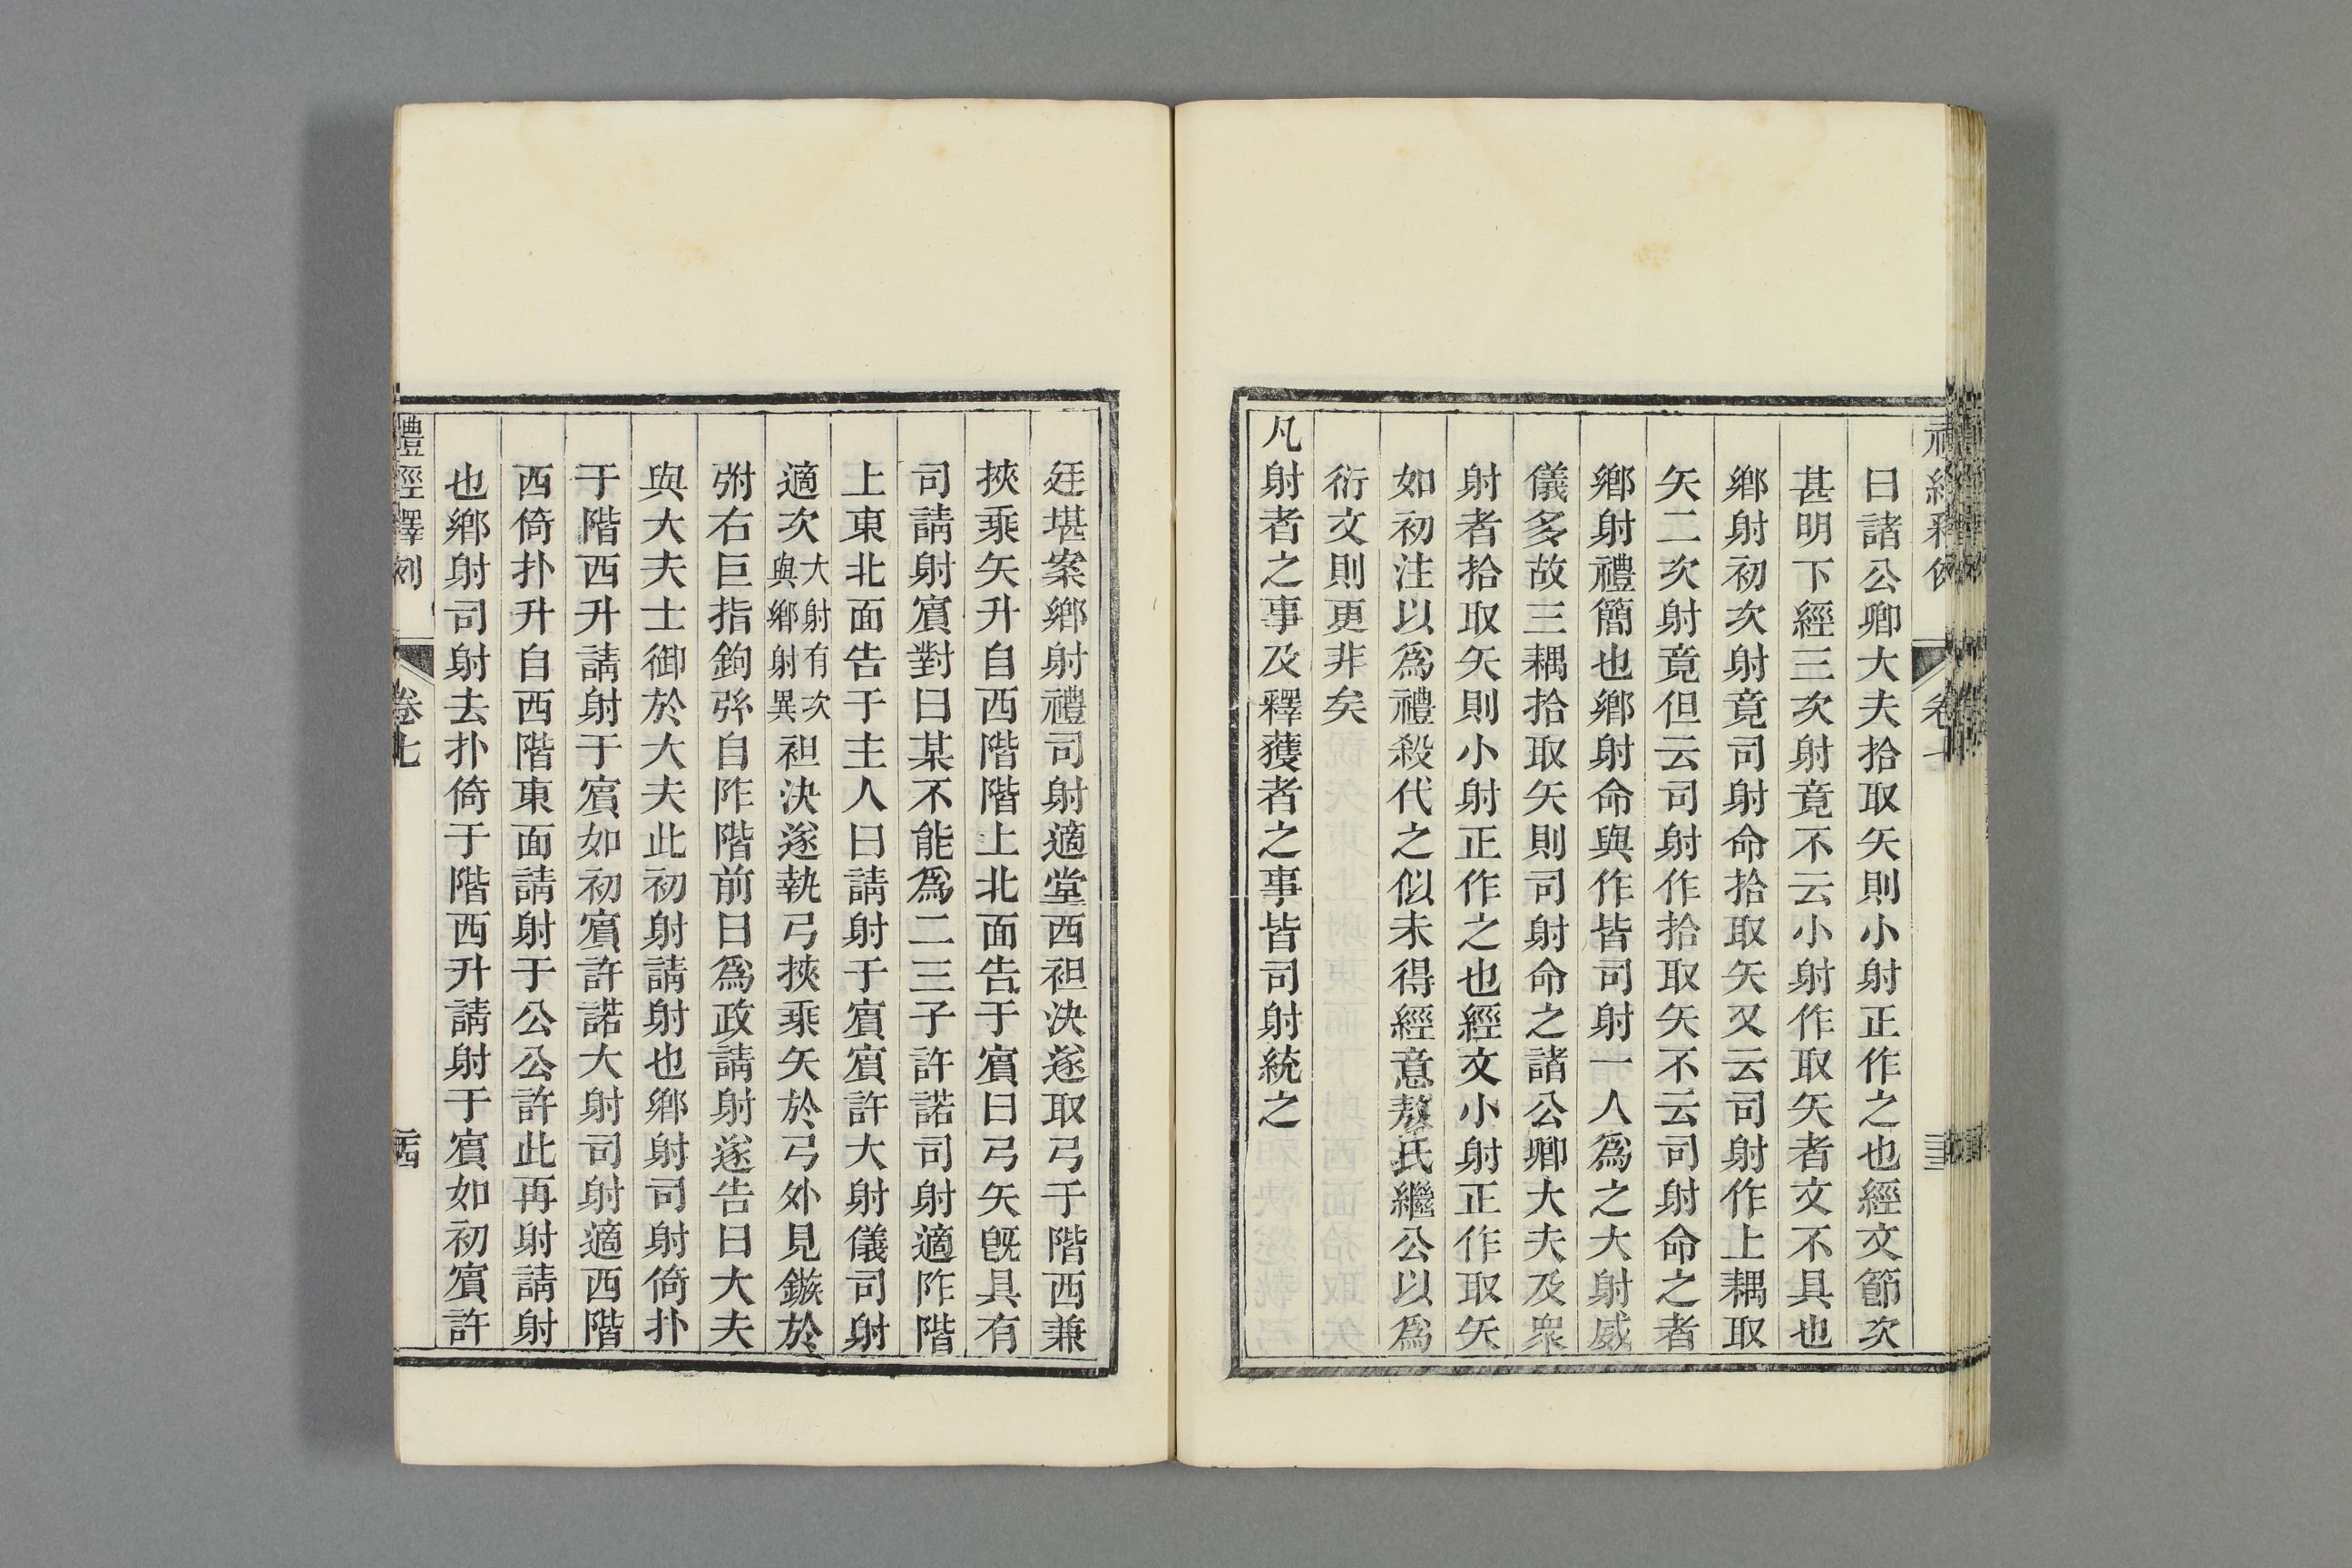 曰諸公卿大夫拾取矢則小射正作之也經文節次
甚明下經三次射竟不云小射作取矢者文不具也
鄉射初次射竟司射命拾取矢又云司射作上耦取
矢二次射竟但云司射作拾取矢不云司射命之者
鄉射禮簡也鄉射命與作皆司射一人爲之大射威
儀多故三耦拾取矢則司射命之諸公卿大夫及眾
射者拾取矢則小射正作之也經文小射正作取矢
如初注以爲禮殺代之似未得經意敖氏繼公以爲
衍文則更非矣
凡射者之事及釋獲者之事皆司射統之
廷堪案鄉射禮司射適堂西袒決遂取弓于階西兼
挾乘矢升自西階階上北面告于賓曰弓矢既具有
司請射賓對曰某不能爲二三子許諾司射適阼階
上東北面告于主人曰請射于賓賓許大射儀司射
適次大射有次與鄉射異袒決遂執弓挾乘矢於弓外見鏃於
弣右巨指鉤弦自阼階前曰爲政請射遂告曰大夫
與大夫士御於大夫此初射請射也鄉射司射倚扑
于階西升請射于賓如初賓許諾大射司射適西階
西倚扑升自西階東面請射于公公許此再射請射
也鄉射司射去扑倚于階西升請射于賓如初賓許
禮經釋例
卷七
二十四